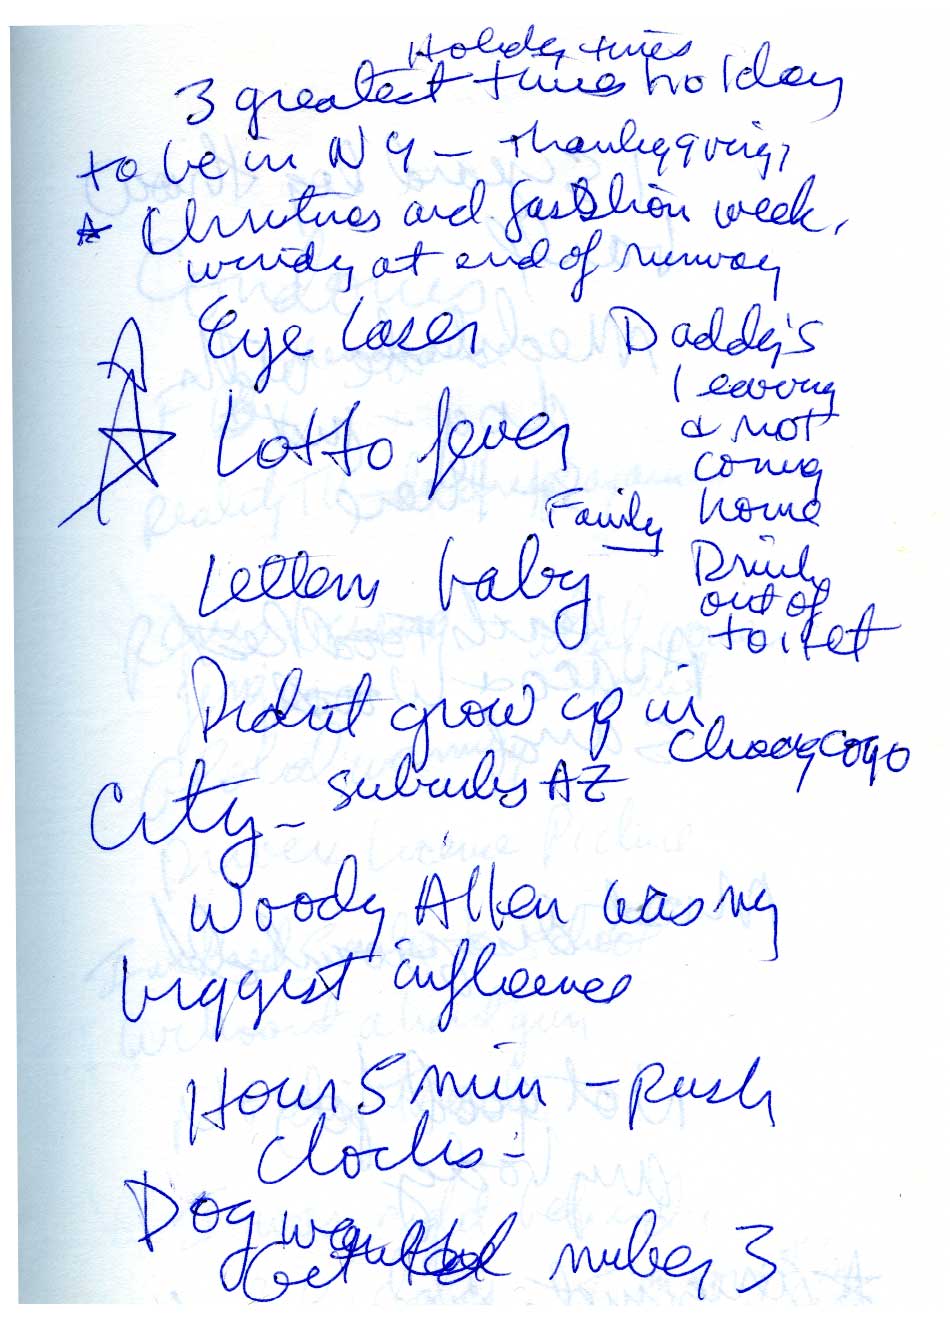 Holiday times
3 greatest times holiday
to be in NY – Thanksgiving,
Christmas and fashion week,
windy at end of runway
Eye laser
Daddy's
leaving
& not
coming
home
Lotto fever
Family
Letterm baby
Drink
out of
toilet
Didn't grow up in
City – suburbs AZ
Woody Allen was my
biggest influence
Hour 5 min – push
clocks –
Dog wanted
Get number 3